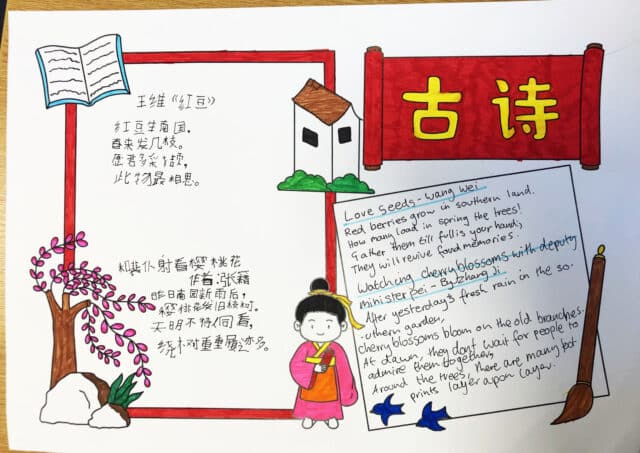 王维《红豆》
红豆生南国,
春来发几枝。
愿君多采撷,
此物最相思。
和裴仆射看樱桃花
作者:张籍
昨日南园新雨后,
樱桃花发旧枝柯。
天明不待人同看,
绕树重重履迹多。
古诗
Love Seeds - Wang Wei
Red berries grow in southern land.
How many load in spring the trees!
Gather them till full is your hand;
They will revive fond memories.
Watching cherry blossoms with deputy
minister pei - By zhang Ji
After yesterday's fresh rain in the so-
-uthern garden,
cherry blossoms bloom on the old branches.
At dawn, they dont wait for people to
admire them together,
Around the trees, There are many foot
prints layer upon layer.